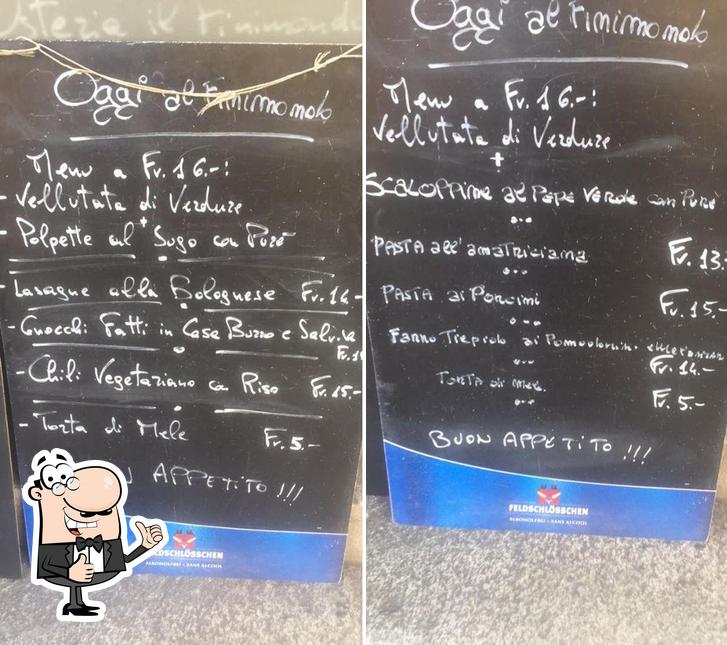 Oggi al Finimondo
Menu a Fr. 16.-!
- Vellutata di Verdure
+
- Polpette al Sugo con Purè
- Lasagne alla Bolognese Fr. 14.-
- Gnocchi Fatti in Casa Burro e Salvia
Fr. 1
- Chili Vegetariano con Riso Fr. 15.-
- Torta di Mele Fr. 5.-
APPETITO !!!
LDSCHLÖSSCHEN
ALKOHOLFREI • SANS ALCOOL
Oggi al Finimondo
Menu a Fr. 16.-!
Vellutata di Verdure
+
SCALOPPINE al PEPE VERDE con PURÈ
PASTA all'amaTriciana Fr. 13.-
PASTA ai PORCINI Fr. 15.-
Farro Tiepido ai Pomodorini
Fr. 14.-
TORTA di mele Fr. 5.-
BUON APPETITO !!!
FELDSCHLÖSSCHEN
ALKOHOLFREI • SANS ALCOOL